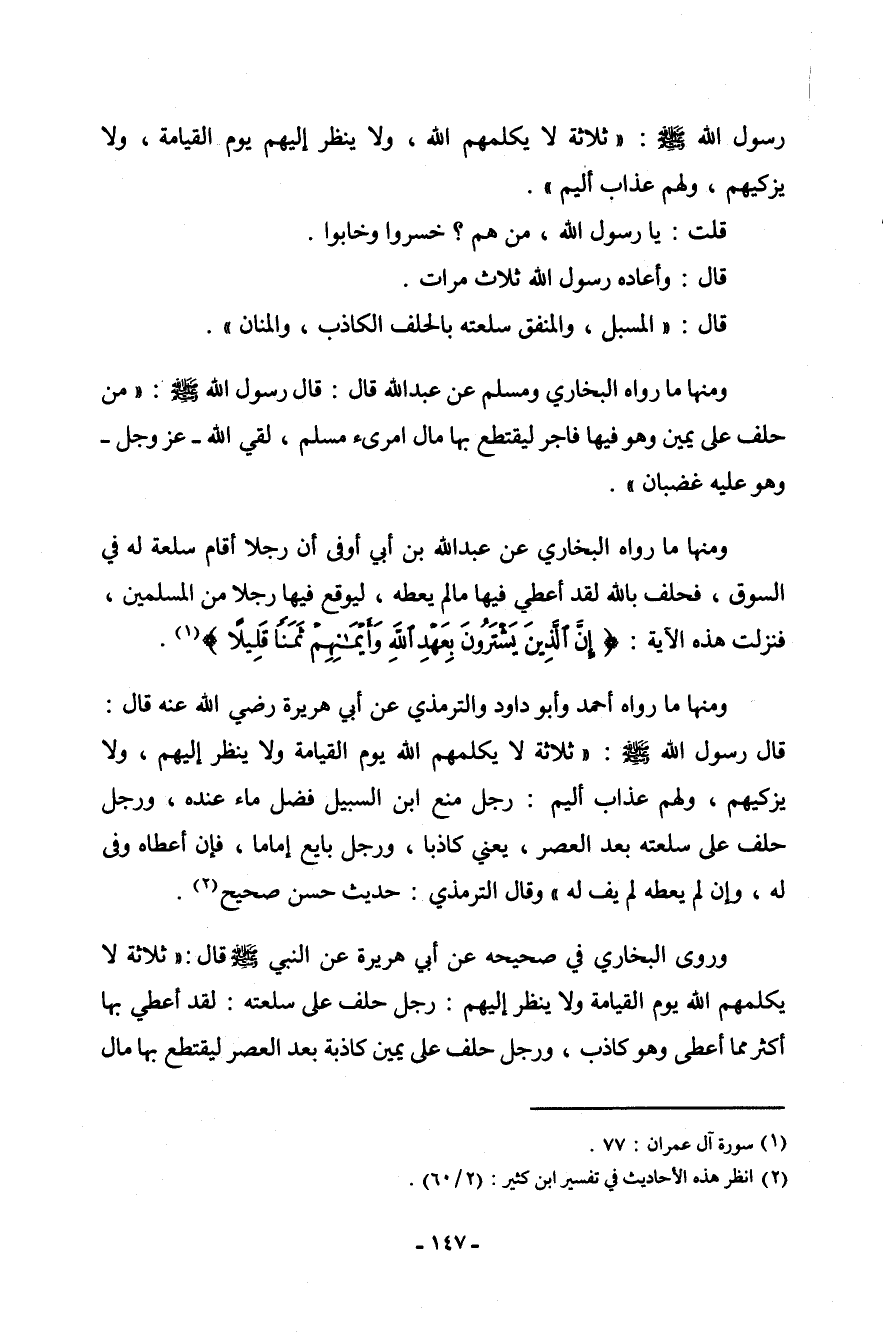 رسول الله ﷺ : « ثلاثة لا يكلمهم الله ، ولا ينظر إليهم يوم القيامة ، ولا
يزكيهم ، ولهم عذاب أليم » .
قلت : يا رسول الله ، من هم ؟ خسروا وخابوا .
قال : وأعاده رسول الله ثلاث مرات .
قال : « المسبل ، والمنفق سلعته بالحلف الكاذب ، والمنان » .
ومنها ما رواه البخاري ومسلم عن عبدالله قال : قال رسول الله ﷺ : « من
حلف على يمين وهو فيها فاجر ليقتطع بها مال امرىء مسلم ، لقي الله ـ عز وجل ـ
وهو عليه غضبان » .
ومنها ما رواه البخاري عن عبدالله بن أبي أوفى أن رجلا أقام سلعة له في
السوق ، فحلف بالله لقد أعطي فيها مالم يعطه ، ليوقع فيها رجلا من المسلمين ،
فنزلت هذه الآية : ﴿ إِنَّ ٱلَّذِينَ يَشْتَرُونَ بِعَهْدِ ٱللَّهِ وَأَيْمَـٰنِهِمْ ثَمَنًا قَلِيلًا ﴾(١) .
ومنها ما رواه أحمد وأبو داود والترمذي عن أبي هريرة رضي الله عنه قال :
قال رسول الله ﷺ : « ثلاثة لا يكلمهم الله يوم القيامة ولا ينظر إليهم ، ولا
يزكيهم ، ولهم عذاب أليم : رجل منع ابن السبيل فضل ماء عنده ، ورجل
حلف على سلعته بعد العصر ، يعني كاذبا ، ورجل بايع إماما ، فإن أعطاه وفى
له ، وإن لم يعطه لم يف له » وقال الترمذي : حديث حسن صحيح(٢) .
وروى البخاري في صحيحه عن أبي هريرة عن النبي ﷺ قال :« ثلاثة لا
يكلمهم الله يوم القيامة ولا ينظر إليهم : رجل حلف على سلعته : لقد أعطي بها
أكثر مما أعطى وهو كاذب ، ورجل حلف على يمين كاذبة بعد العصر ليقتطع بها مال
(١) سورة آل عمران : ٧٧ .
(٢) انظر هذه الأحاديث في تفسير ابن كثير : (٦٠/٢) .
ـ ١٤٧ ـ